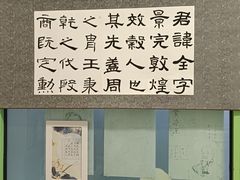 君諱全字
景完敦煌
效穀人也
其先蓋周
之胄王秉
乾之伐殷
商既定勳